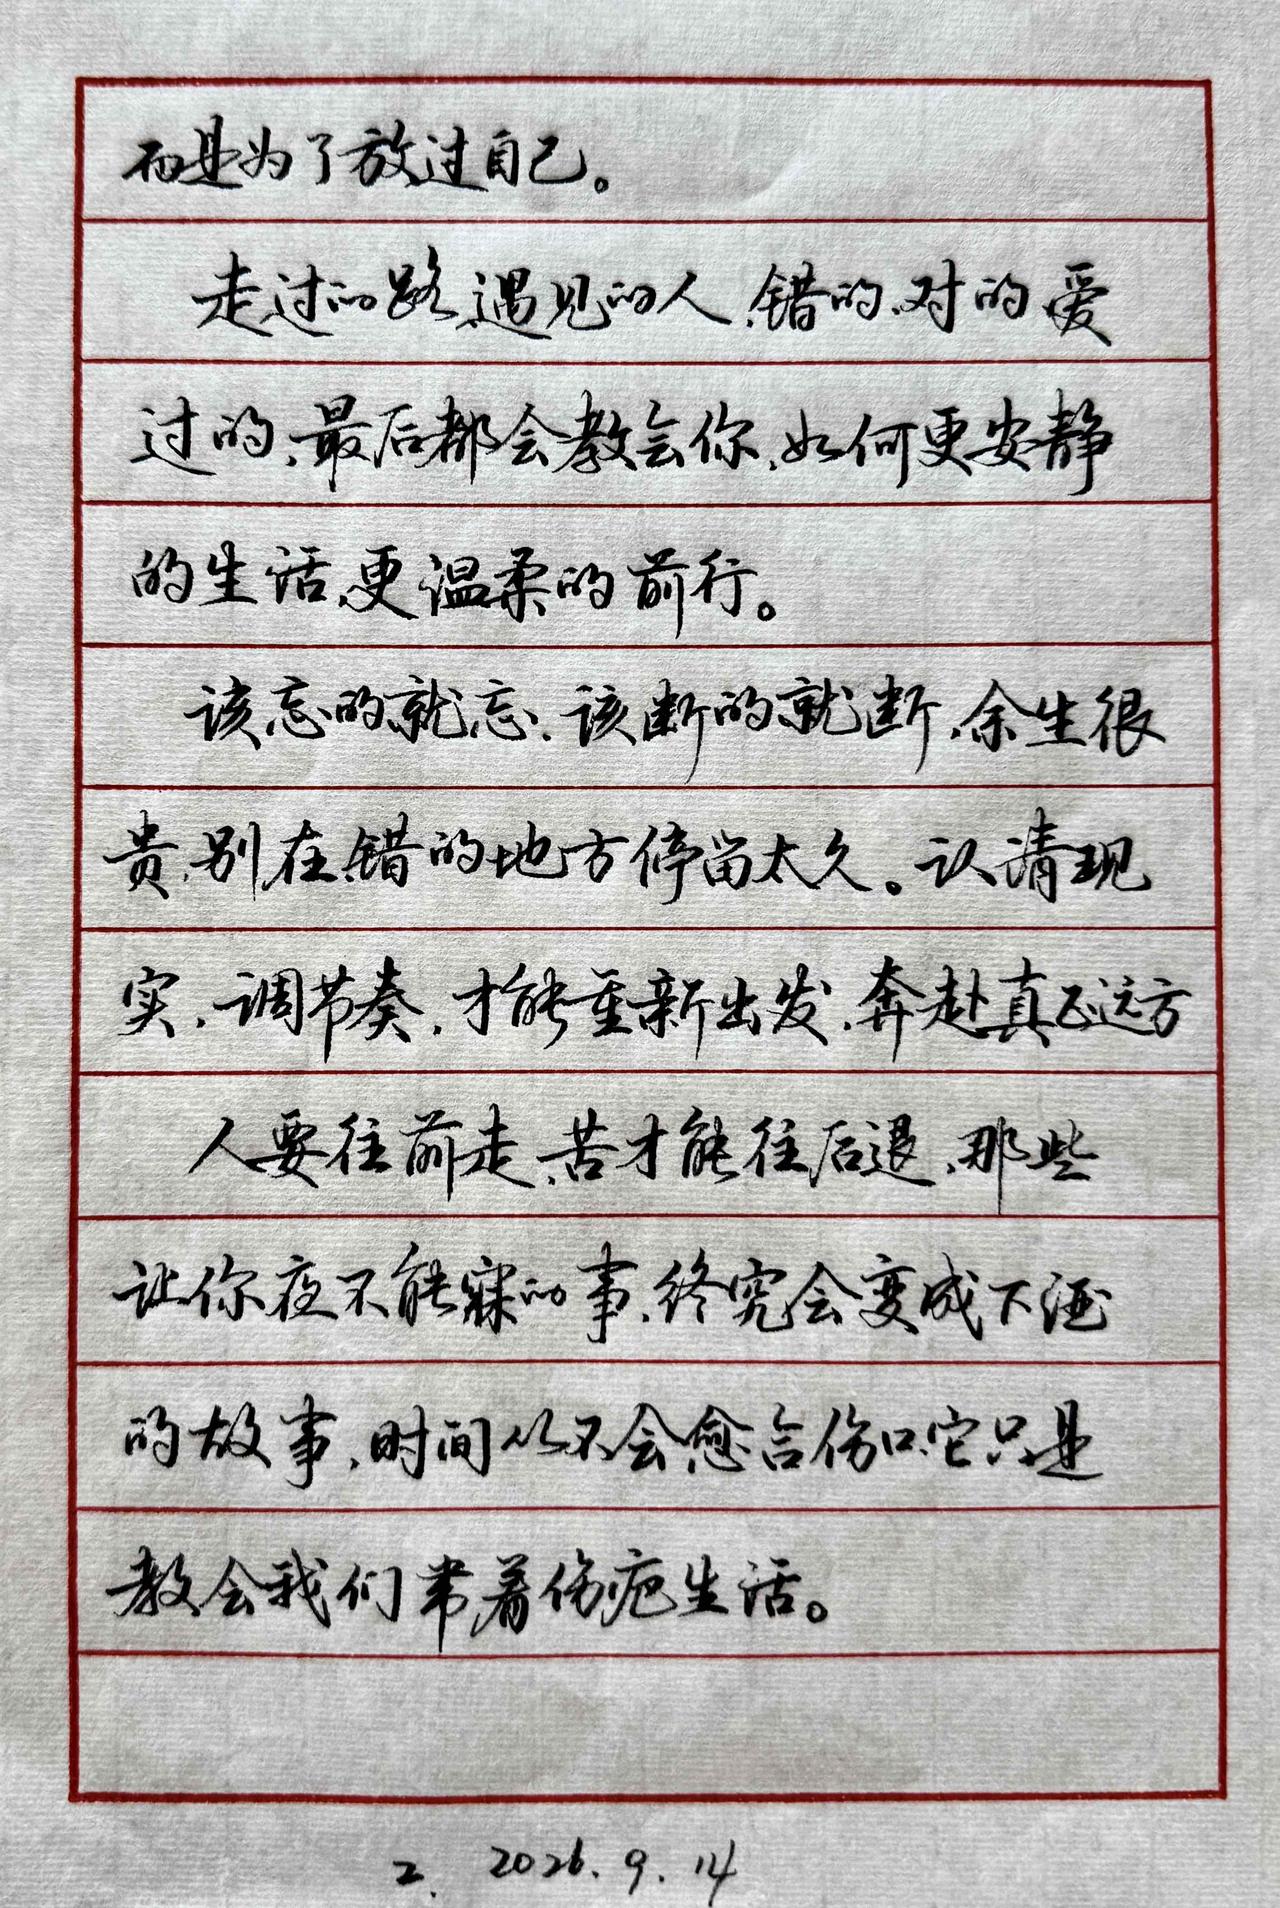 而是为了放过自己。
走过的路、遇见的人、错的、对的、爱
过的、最后都会教会你、如何更安静
的生活、更温柔的前行。
该忘的就忘、该断的就断、余生很
贵、别在错的地方停留太久。认清现
实、调节奏、才能重新出发、奔赴真正远方
人要往前走、苦才能往后退、那些
让你夜不能寐的事、终究会变成下酒
的故事、时间从不会愈合伤口、它只是
教会我们带着伤疤生活。
2. 2026.9.14